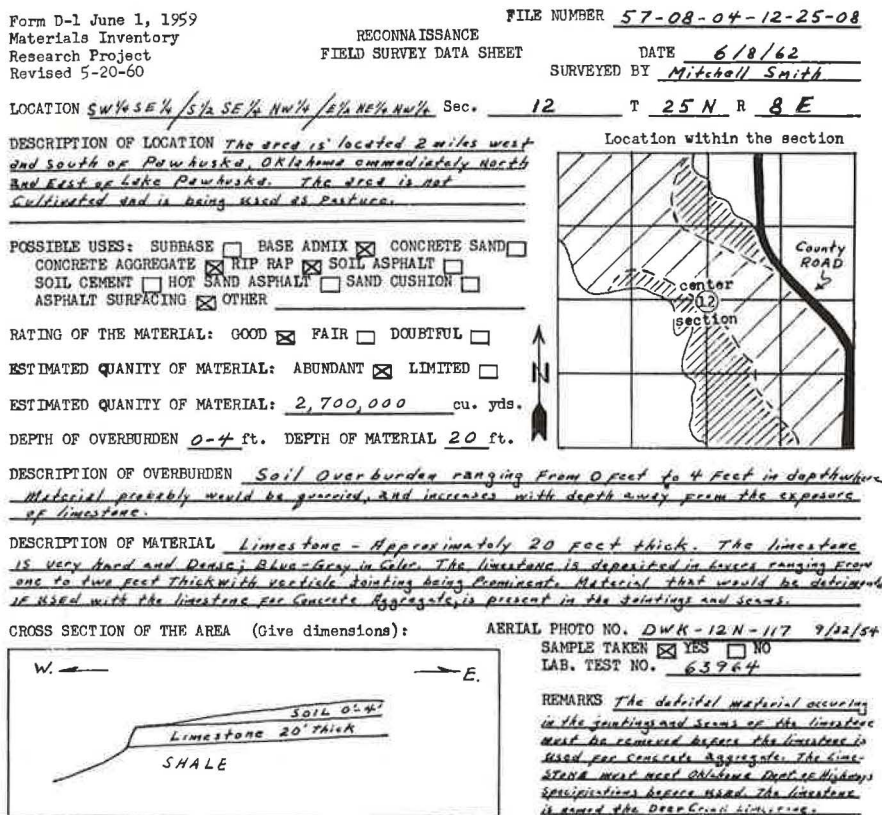 Form D-1 June 1, 1959
Materials Inventory
Research Project
Revised 5-20-60
RECONNAISSANCE
FIELD SURVEY DATA SHEET
FILE NUMBER 57-08-04-12-25-08
DATE 6/8/62
SURVEYED BY Mitchell Smith
LOCATION SW¼ SE¼/S½ SE¼ NW¼/E½ NE¼ NW¼ Sec. 12 T 25N R 8E
DESCRIPTION OF LOCATION The area is located 2 miles west
and south of Pawhuska, Oklahoma emmediately North
and East of Lake Pawhuska. The area is not
Cultivated and is being used as Pasture.
Location within the section
County
ROAD
center
12
section
N
POSSIBLE USES: SUBBASE BASE ADMIX CONCRETE SAND
CONCRETE AGGREGATE RIP RAP SOIL ASPHALT
SOIL CEMENT HOT SAND ASPHALT SAND CUSHION
ASPHALT SURFACING OTHER
RATING OF THE MATERIAL: GOOD FAIR DOUBTFUL
ESTIMATED QUANITY OF MATERIAL: ABUNDANT LIMITED
ESTIMATED QUANITY OF MATERIAL: 2,700,000 cu. yds.
DEPTH OF OVERBURDEN 0-4 ft. DEPTH OF MATERIAL 20 ft.
DESCRIPTION OF OVERBURDEN Soil Overburden ranging From 0 feet to 4 Feet in depth where
Material probably would be quarried, and increases with depth away from the exposure
of limestone.
DESCRIPTION OF MATERIAL Limestone - Approximately 20 feet thick. The limestone
is very hard and Dense; Blue-Gray in Color. The limestone is deposited in layers ranging From
one to two feet Thick with verticle Jointing being Prominent. Material that would be detrimental
IF USED with the limestone for Concrete Aggregate, is present in the Jointings and Seams.
CROSS SECTION OF THE AREA (Give dimensions):
W. E.
SOIL 0'-4'
Limestone 20' Thick
SHALE
AERIAL PHOTO NO. DWK-12N-117 9/22/54
SAMPLE TAKEN YES NO
LAB. TEST NO. 63964
REMARKS The detrital material occuring
in the jointings and seams of the limestone
must be removed before the limestone is
used for concrete aggregate. The Lime-
STONE must meet Oklahoma Dept of Highways
specifications before used. The limestone
is named the Deer Creek Limestone.